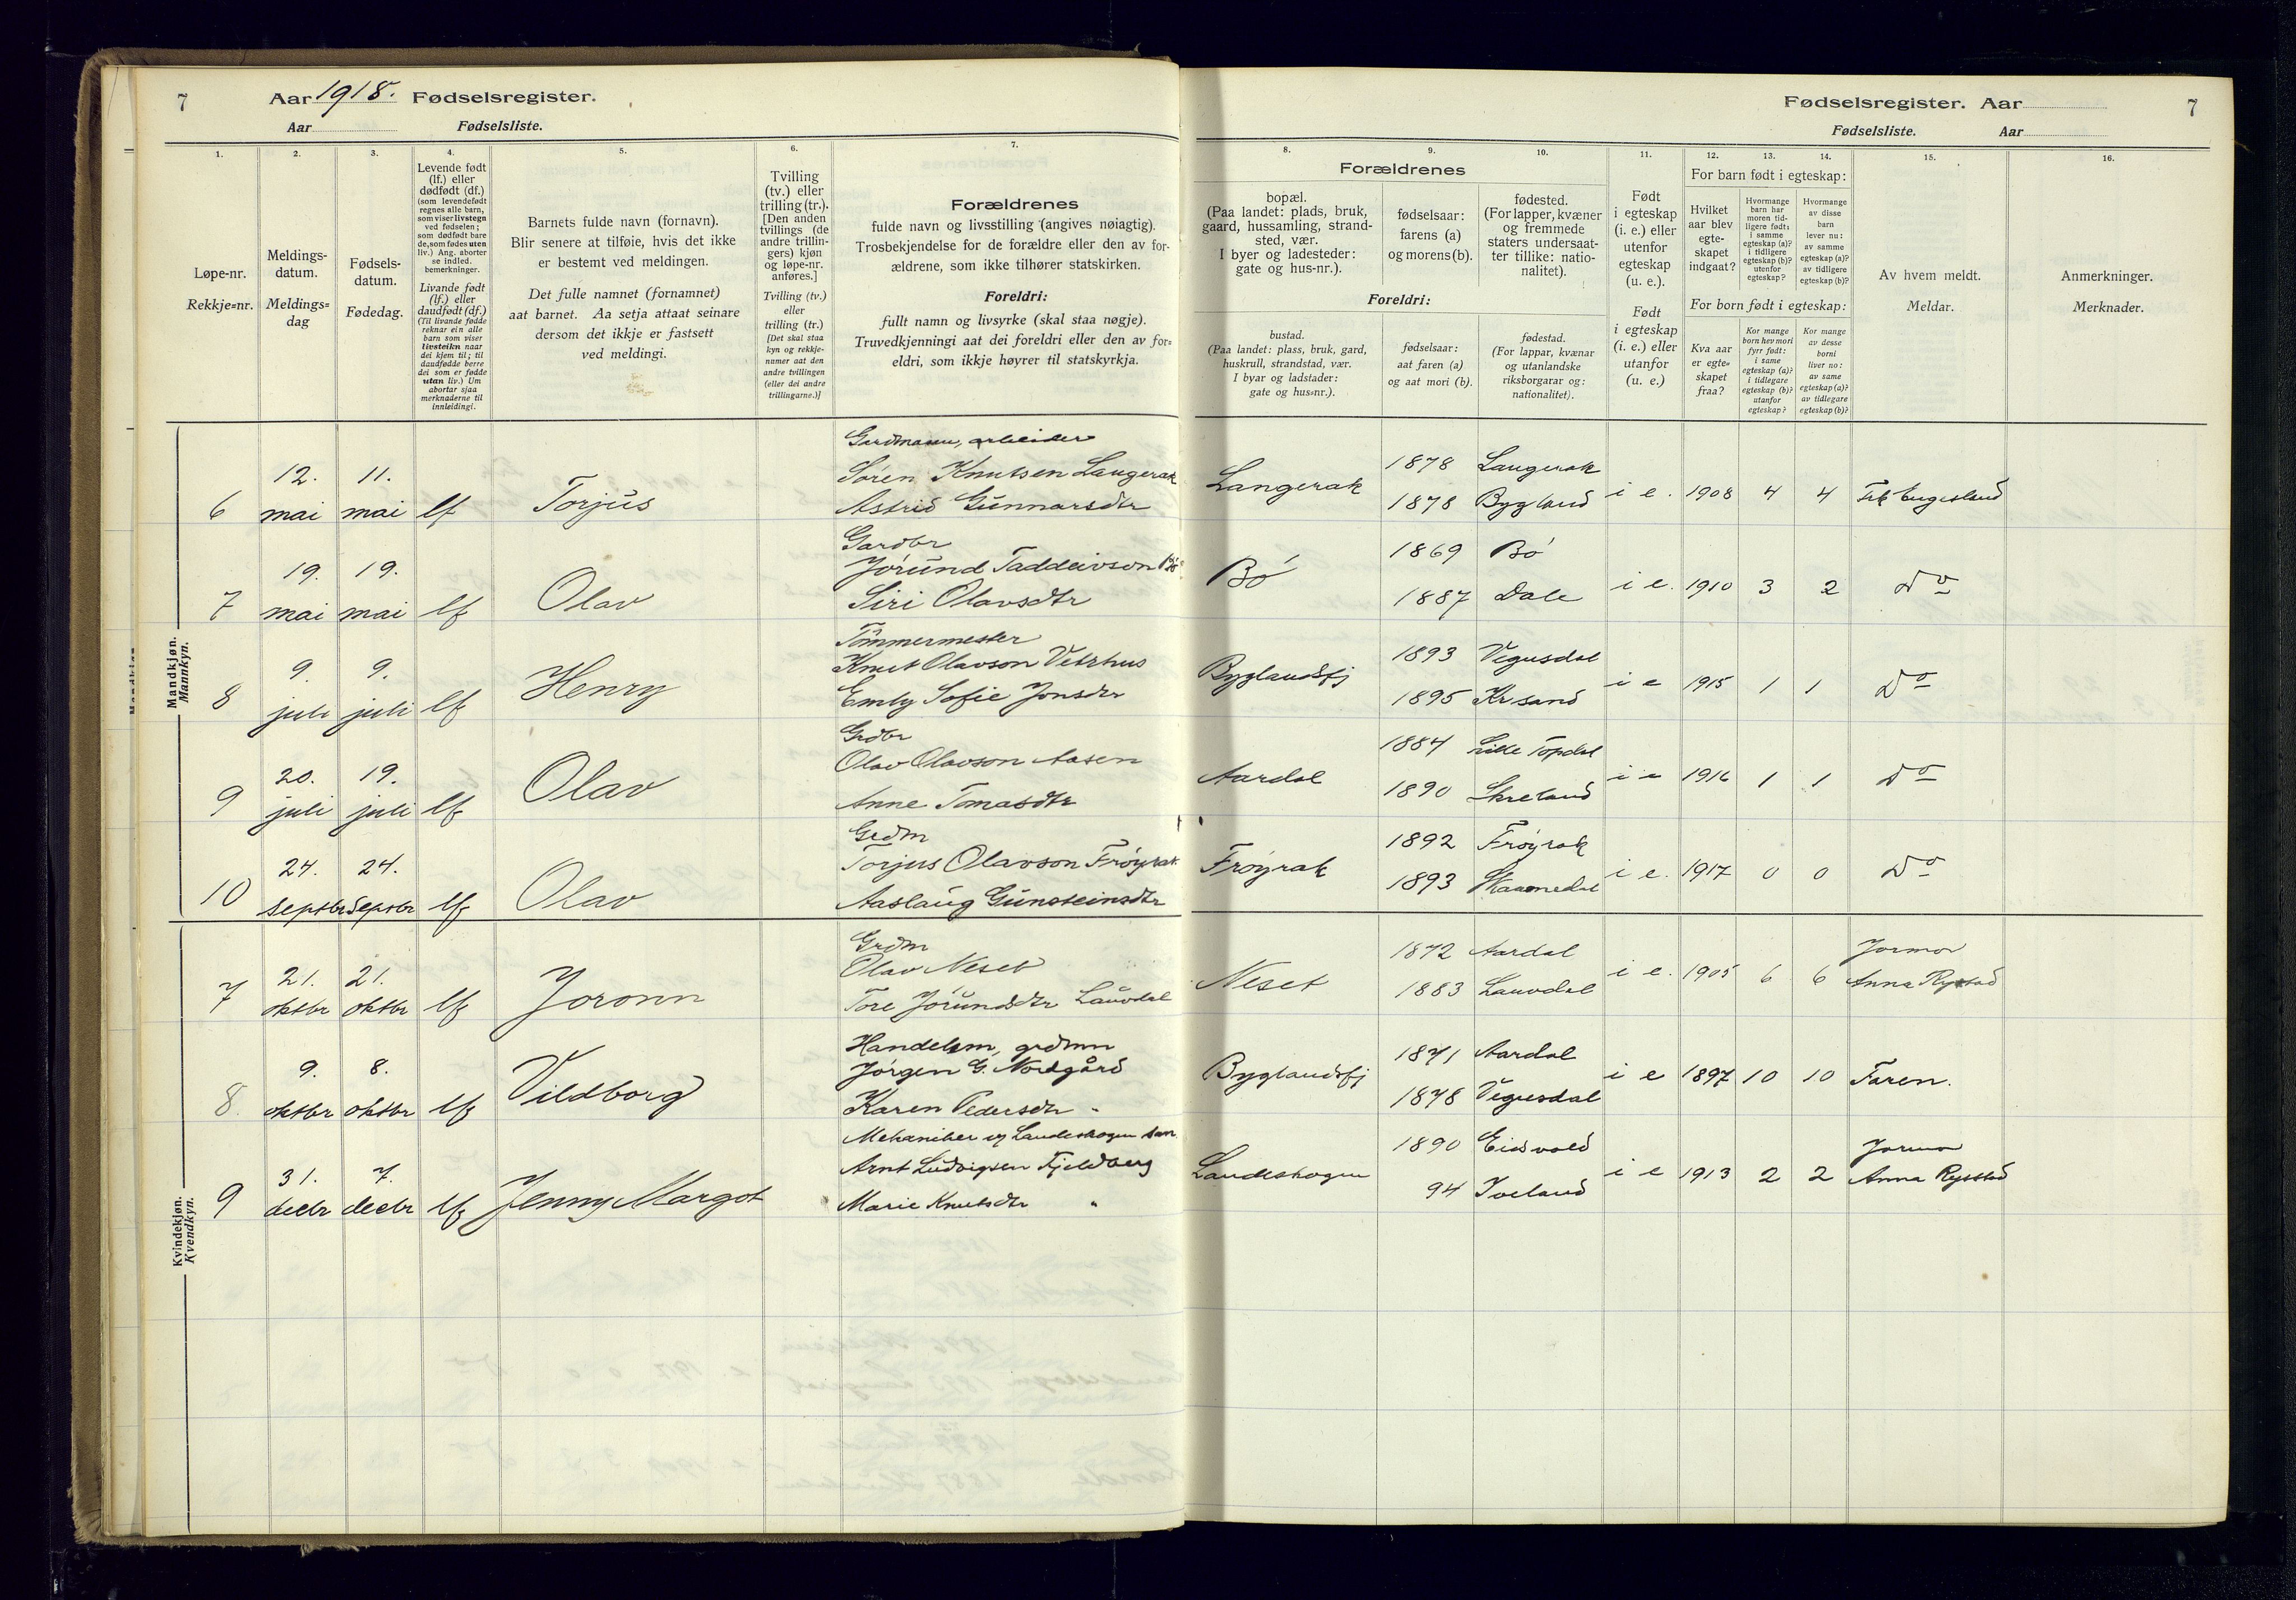 7
Aar 1918. Fødselsregister.
Aar Fødselsliste.
Fødselsregister. Aar
7
Fødselsliste. Aar
1.
Løpe-nr.
Rekkje=nr.
2.
Meldings-
datum.
Meldings=
dag
3.
Fødsels-
datum.
Fødedag.
4.
Levende født
(lf.) eller
dødfødt (df.)
(som levendefødt
regnes alle barn,
som viser livstegn
ved fødselen;
som dødfødt bare
de, som fødes uten
liv.) Ang. aborter
se indled.
bemerkninger.
Livande født
(lf.) eller
daudfødt (df.)
(Til livande fødde
reknar ein alle
barn som viser
livsteikn naar
dei kjem til; til
daudfødde berre
dei som er fødde
utan liv.) Um
abortar sjaa
merknaderne til
innleidingi.
5.
Barnets fulde navn (fornavn).
Blir senere at tilføie, hvis det ikke
er bestemt ved meldingen.
Det fulle namnet (fornamnet)
aat barnet. Aa setja attaat seinare
dersom det ikkje er fastsett
ved meldingi.
6.
Tvilling
(tv.) eller
trilling (tr.).
[Den anden
tvillings (de
andre trillin-
gers) kjøn
og løpe-nr.
anføres.]
Tvilling (tv.)
eller
trilling (tr.)
[Det skal staa
kyn og rekkje-
numer aat den
andre tvillingen
(eller dei andre
trillingarne.)]
7.
Forældrenes
fulde navn og livsstilling (angives nøiagtig).
Trosbekjendelse for de forældre eller den av for-
ældrene, som ikke tilhører statskirken.
Foreldri:
fullt namn og livsyrke (skal staa nøgje).
Truvedkjenningi aat dei foreldri eller den av for=
eldri, som ikkje høyrer til statskyrkja.
Forældrenes
8.
bopæl.
(Paa landet: plads, bruk,
gaard, hussamling, strand-
sted, vær.
I byer og ladesteder:
gate og hus-nr.).
9.
fødselsaar:
farens (a)
og morens (b).
10.
fødested.
(For lapper, kvæner
og fremmede
staters undersaat-
ter tillike: natio-
nalitet).
Foreldri:
bustad.
(Paa landet: plass, bruk, gard,
huskrull, strandstad, vær.
I byar og ladstader:
gate og hus=nr.).
fødselsaar:
aat faren (a)
og aat mori (b).
fødestad.
(For lappar, kvænar
og utanlandske
riksborgarar og:
nationalitet).
11.
Født
i egteskap
(i. e.) eller
utenfor
egteskap
(u. e.).
Født
i egteskap
(i. e.) eller
utanfor
(u. e.)
For barn født i egteskap:
12.
Hvilket
aar blev
egte-
skapet
indgaat?
13.
Hvormange
barn har
moren tid-
ligere født:
i samme
egteskap (a)?
i tidligere
egteskap (b)?
utenfor
egteskap?
14.
Hvormange
av disse
barn
lever nu:
av samme
egteskap (a)?
av tidligere
egteskap (b)?
For born født i egteskap:
Kva aar
er egte=
skapet
fraa?
Kor mange
born hev mori
fyrr født:
i same
egteskap (a)?
i tidlegare
egteskap (b)?
utanfor
egteskap?
Kor mange
av desse
borni
liver no:
av same
egteskap (a)?
av tidlegare
egteskap (b)?
15.
Av hvem meldt.
Meldar.
16.
Anmerkninger.
Merknader.
Mandkjøn.
Mannkyn.
Gardmann, arbeider
12. 11. Søren Knutsen Langerak 1878 Langerak
6 mai mai lf Torjus Astrid Gunnarsdtr Langerak 1878 Bygland i e. 1908 4 4 Engesland
Gardbr
19. 19. Jørund Taddeivson Bø 1869 Bø
7 mai mai lf Olav Siri Olavsdtr Bø 1887 Dale i e. 1910 3 2 Do
Tømmermester
9. 9. Knut Olavson Vetrhus 1893 Vegusdal
8 juli juli lf Henry Emly Sofie Jonsdtr Byglandsfj 1895 Krsand i e 1915 1 1 Do
Grdbr
20. 19. Olav Olavson Aasen 1884 Lille Topdal
9 juli juli lf Olav Anne Tomasdtr Aardal 1890 Skreland i e 1916 1 1 Do
Grdm
24. 24. Torjus Olavson Frøyrak 1892 Frøyrak
10 septbr septbr lf Olav Aaslaug Gunsteinsdtr Frøyrak 1893 i e. 1917 0 0 Do
Kvindekjøn.
Kvendkyn.
Grdm
21. 21. Olav Neset 1872 Aardal Jormor
7 oktbr oktbr lf Joronn Tore Jørundsdtr Lauvdal Neset 1883 Lauvdal i e. 1905 6 6 Anna Rystad
Handelsm, grdmn
9. 8. Jørgen G. Nordgård 1871 Aardal
8. oktbr oktbr lf Vildborg Karen Pedersdtr " Byglandsfj 1878 Vegusdal i e 1897 10 10 Faren.
Mekaniker ved Landeskogen san.
31. 7. Arnt Ludvigsen Fjeldberg 1890 Eidsvold Jormor
9 decbr decbr lf Jenny Margot Marie Knutsdtr " Landeskogen 94 Iveland i e 1913 2 2 Anna Rysstad